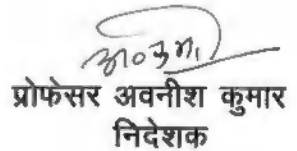 प्रोफेसर अवनीश कुमार
निदेशक